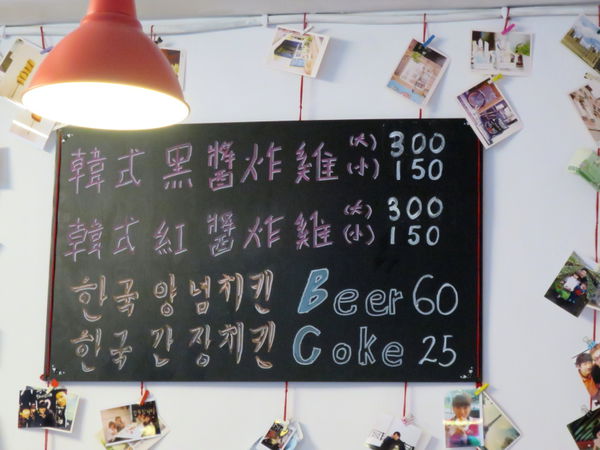 韓式黑醬炸雞 (大) 300
(小) 150
韓式紅醬炸雞 (大) 300
(小) 150
한국 양념치킨 Beer 60
한국 간장치킨 Coke 25